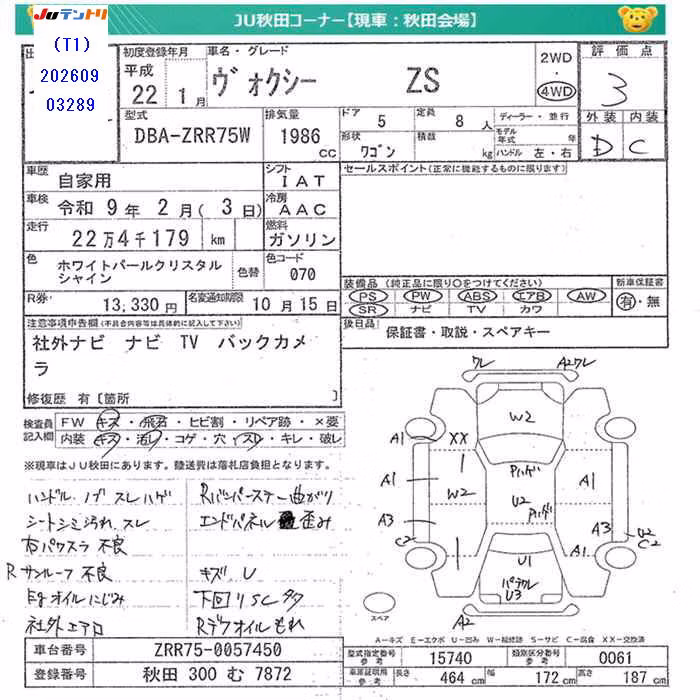 JUテントリ
JU秋田コーナー【現車：秋田会場】
(T1)
202609
03289
初度登録年月
平成
22 1月
車名・グレード
ヴォクシー ZS
2WD
・
4WD
評価点
3
型式
DBA-ZRR75W
排気量
1986 CC
ドア 5
定員 8 人
形状 ワゴン
積載 kg
ディーラー・並行
モデル年式 年
ハンドル 左・右
外装 内装
D C
車歴 自家用
シフト IAT
セールスポイント(正常に機能するものに限ります)
車検 令和 9年 2月( 3日)
冷房 AAC
走行 22万4千179 km
燃料 ガソリン
色 ホワイトパールクリスタルシャイン
色替
色コード 070
R券 13,330円
名変通知期限 10月15日
装備品(純正品に限り○をつけてください)
PS・PW・ABS・エアB・AW
SR・ナビ・TV・カワ
新車保証書
有・無
後日品 保証書・取説・スペアキー
注意事項申告欄(不具合内容等は具体的に記入して下さい)
社外ナビ ナビ TV バックカメ
ラ
修復歴 有〔箇所 〕
検査員記入欄
FW キズ・飛石・ヒビ割・リペア跡・×要
内装 キズ・汚レ・コゲ・穴・スレ・キレ・破レ
※現車はJU秋田にあります。陸送費は落札店負担となります。
ハンドル.ノブ スレハゲ
シートシミ汚れ.スレ
右パワスラ 不良
R サンルーフ 不良
Egオイルにじみ
社外エアロ
Rバンパーステー曲がり
エンドパネル歪み
キズ、U
下回りSC多
Rデフオイルもれ
ワレ
A2ワレ
W2
A1
XX
A1
W2
A3
C2
Pハゲ
U2
Pハゲ
A1
A3
A1
U2
C2
U1
パテワレ
U3
A2
スペア
A－キズ E－エクボ U－凹み W－板修跡 S－サビ C－腐食 XX－交換済
車台番号 ZRR75-0057450
登録番号 秋田 300 む 7872
型式指定番号 参考 15740
類別区分番号 参考 0061
車庫証明用 参考
長さ 464 cm
幅 172 cm
高さ 187 cm